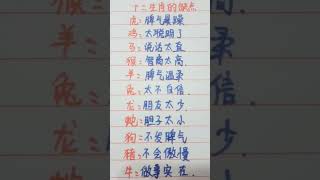 十二生肖的缺点
虎：脾气暴躁
鸡：太聪明了
马：说话太直
猴：智商太高
羊：脾气温柔
兔：太不自信.
龙：朋友太少
蛇：胆子太小
狗：不发脾气
猪：不会傲慢
牛：做事实在.